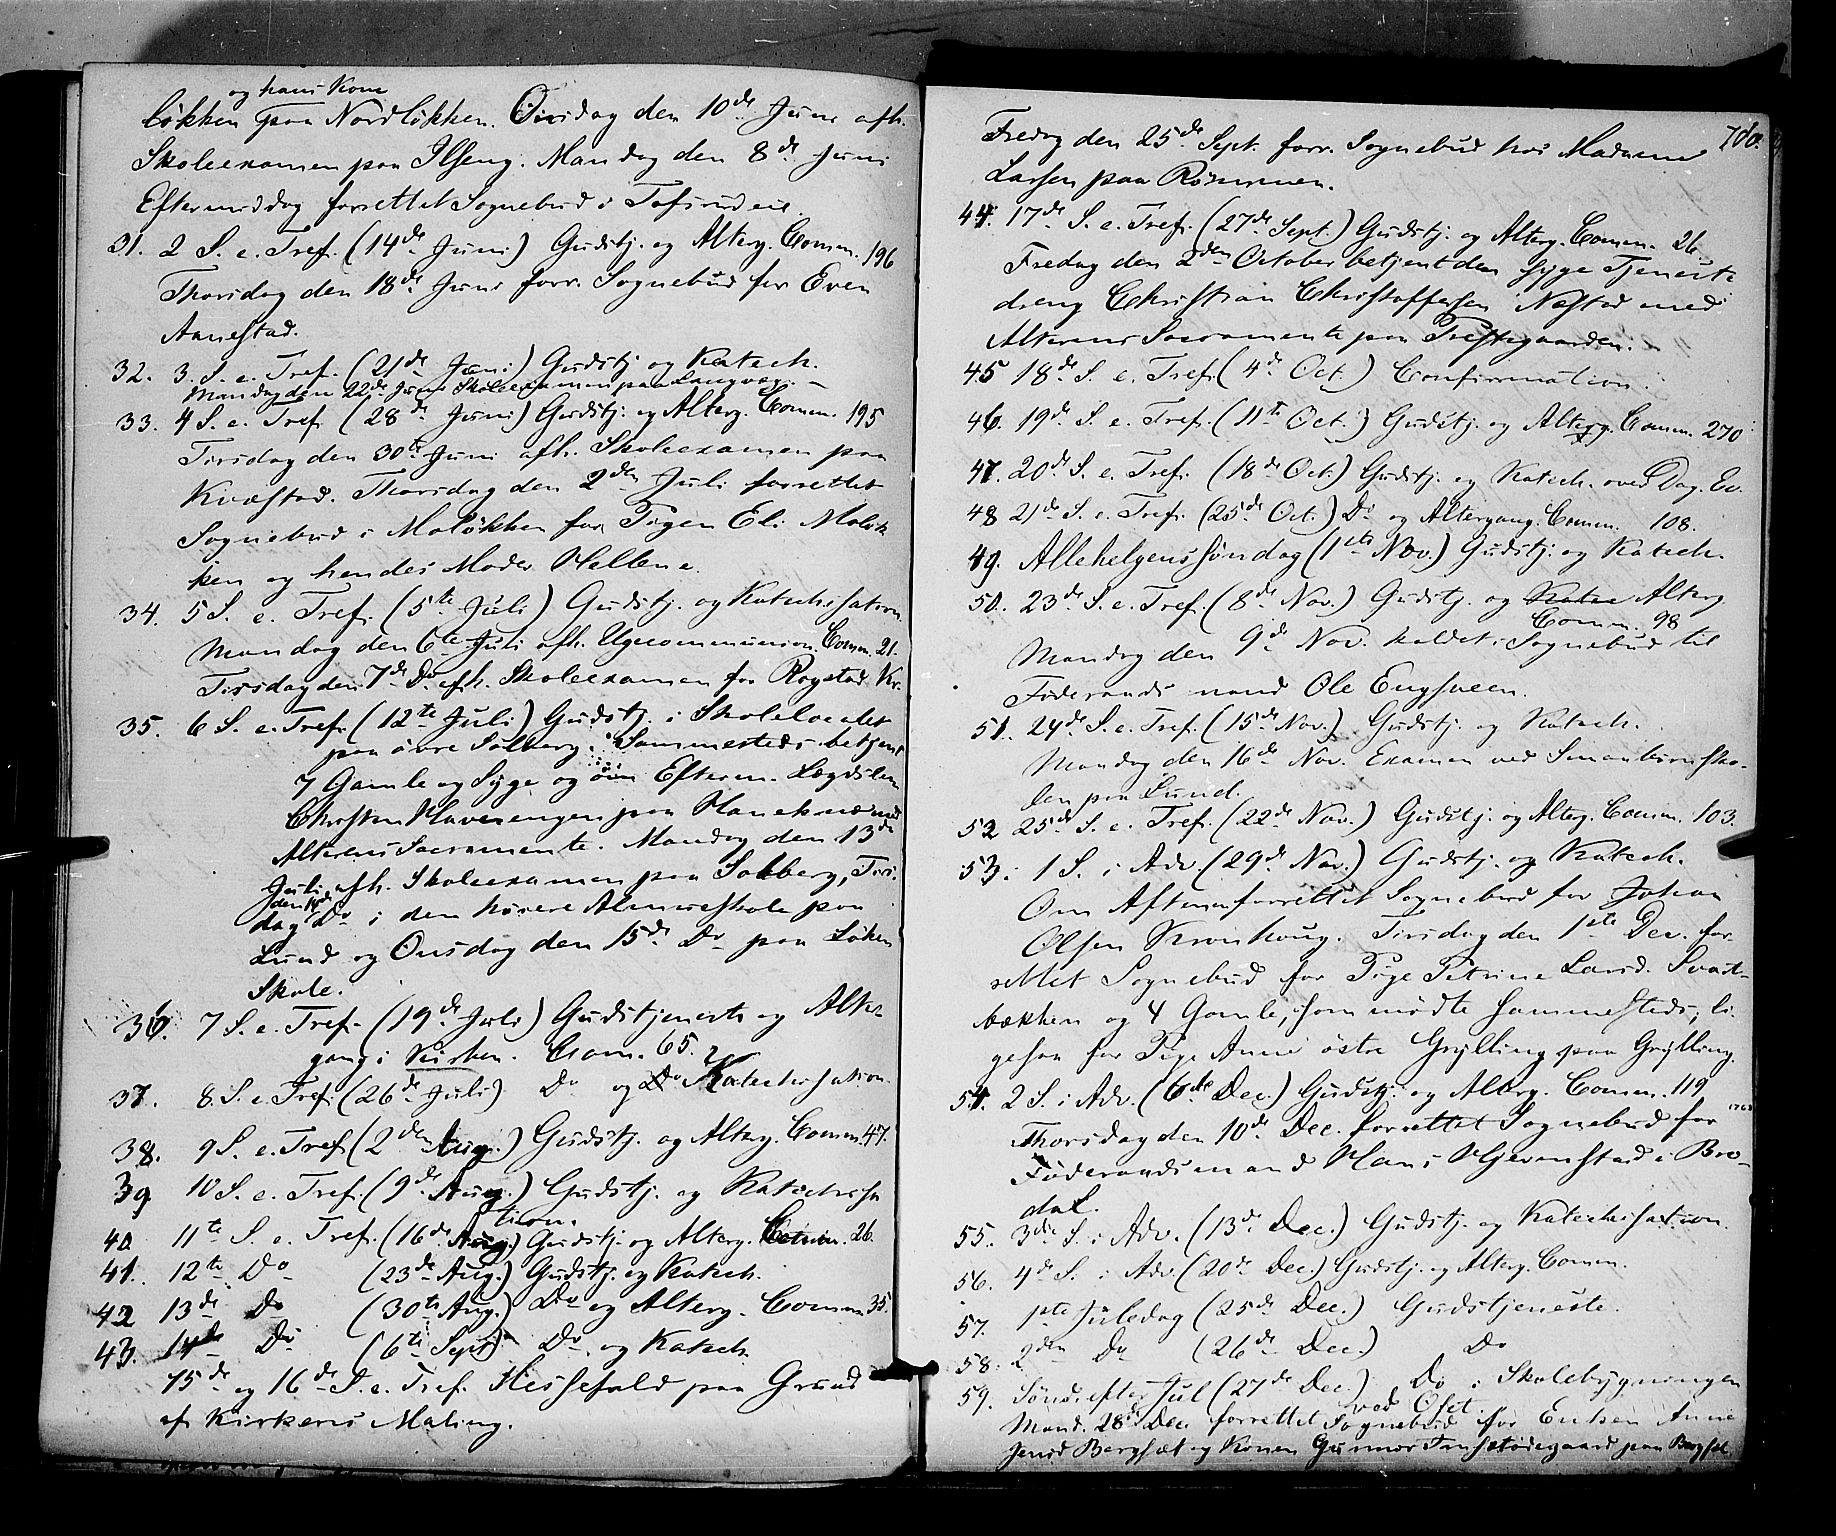 og hans Kone
løkken paa Nordløkken. Onsdag den 10de Juni afh.
Skoleexamen paa Ilseng. Mandag den 8de Juni
Eftermiddag forrettet Sognebud i
31. 2 S. e. Tref. (14de Juni) Gudstj. og Alterg. Comm. 196
Thorsdag den 18de Juni forr. Sognebud for Even
Aanestad.
32. 3. S. e. Tref. (21de Juni) Gudstj og Katech.
Mandag den 22de Juni Skoleexamen paa
33. 4 S. e. Tref. (28de Juni) Gudstj. og Alterg. Comm. 195
Tirsdag den 30te Juni afh. Skoleexamen paa
Kvæstad. Thorsdag den 2den Juli forrettet
Sognebud i Moløkken for Pigen Eli Moløk
ken og hendes Moder Hellene.
34. 5 S. e. Tref. (5te Juli) Gudstj. og Katechisation
Mandag den 6te Juli afh. Ugecommunion. Comm. 21.
Tirsdag den 7de Do afh. Skoleexamen for Rogstad Kr.
35. 6 S. e. Tref. (12te Juli) Gudstj. i Skolelocalet
paa øvre Solberg. Sammesteds betjent
7 Gamle og Syge og om Efterm. Lægdslem
Christen Haverengen paa med
Alterens Sacramente. Mandag den 13de
Juli afh. Skoleexamen paa Solberg, Tirs-
den 14de
dag Do i den høiere Almueskole paa
Lund og Onsdag den 15de Do paa Løken
Skole.
36. 7 S. e. Tref. (19de Juli) Gudstjeneste og Alter-
gang i Kirken. Com. 65.
37. 8. S. e. Tref. (26de Juli) Do og Do Katechisation.
38. 9 S. e. Tref. (2den Aug.) Gudstj. og Alterg. Comm. 47.
39 10 S. e. Tref. (9de Aug.) Gudstj. og Katechisa
tion.
40 11te S. e. Tref. (16de Aug.) Gudstj. og Alterg. Comm. 26.
41. 12te Do (23de Aug.) Gudstj. og Katech.
42 13de Do (30te Aug.) Do og Alterg. Comm. 35.
43. 14de Do (6te Sept) Do og Katech.
15de og 16de S. e. Tref. Messefald paa Grund
af Kirkens Maling.
780.
Fredag den 25de Sept. forr. Sognebud hos Madame
Larsen paa
44. 17de S. e. Tref. (27de Sept.) Gudstj. og Alterg. Comm. 26
Fredag den 2den October betjent den syge Tjeneste
dreng Christian Christoffersen Næstad med
Alterens Sacramente paa Prestegaarden.
45 18de S. e. Tref. (4de Oct.) Confirmation.
46. 19de S. e. Tref. (11te Oct.) Gudstj. og Alterg. Comm. 270
47. 20de S. e. Tref. (18de Oct.) Gudstj. og Katech. over Dag. Ev.
48 21de S. e. Tref. (25de Oct.) Do og Altergang. Comm. 108.
49. Allehelgenssøndag (1ste Nov.) Gudstj. og Katech.
50. 23de S. e. Tref. (8de Nov.) Gudstj. og Katec Alterg
Comm. 98
Mandag den 9de Nov. holdet Sognebud til
Føderaadsmand Ole Engsveen.
51. 24de S. e. Tref. (15de Nov.) Gudstj. og Katech.
Mandag den 16de Nov. Examen ved Smaabørnsko-
len paa Lund.
52 25de S. e. Tref. (22de Nov.) Gudstj. og Alterg. Comm. 103.
53. 1 S. i Adv. (29de Nov.) Gudstj. og Katech.
Om Aftenen forrettet Sognebud for Johan
Olsen Kronhoug. Tirsdag den 1ste Dec. for-
rettet Sognebud for Pige Petrine Larsd. Svart-
bækken og 4 Gamle, som mødte sammesteds, li-
gesaa for Pige Anne østre Grylling paa Grylling.
54. 2 S. i Adv. (6te Dec.) Gudstj. og Alterg. Comm. 119
Thorsdag den 10de Dec. forrettet Sognebud for
Føderaadsmand Hans Hjermstad i Bro-
dal.
55. 3die S. i Adv. (13de Dec.) Gudstj. og Katechisation.
56. 4de S. i Adv. (20de Dec.) Gudstj. og Alterg. Comm.
57. 1ste Juledag (25de Dec.) Gudstjeneste.
58. 2den Do (26de Dec.) Do
59. Sønd. efter Jul (27de Dec.) Do i Skolebygningen
ved Oset.
Mand. 28de Dec. forrettet Sognebud for Enken Anne
Jensd Bergset og Konen Gunnor paa Bergset